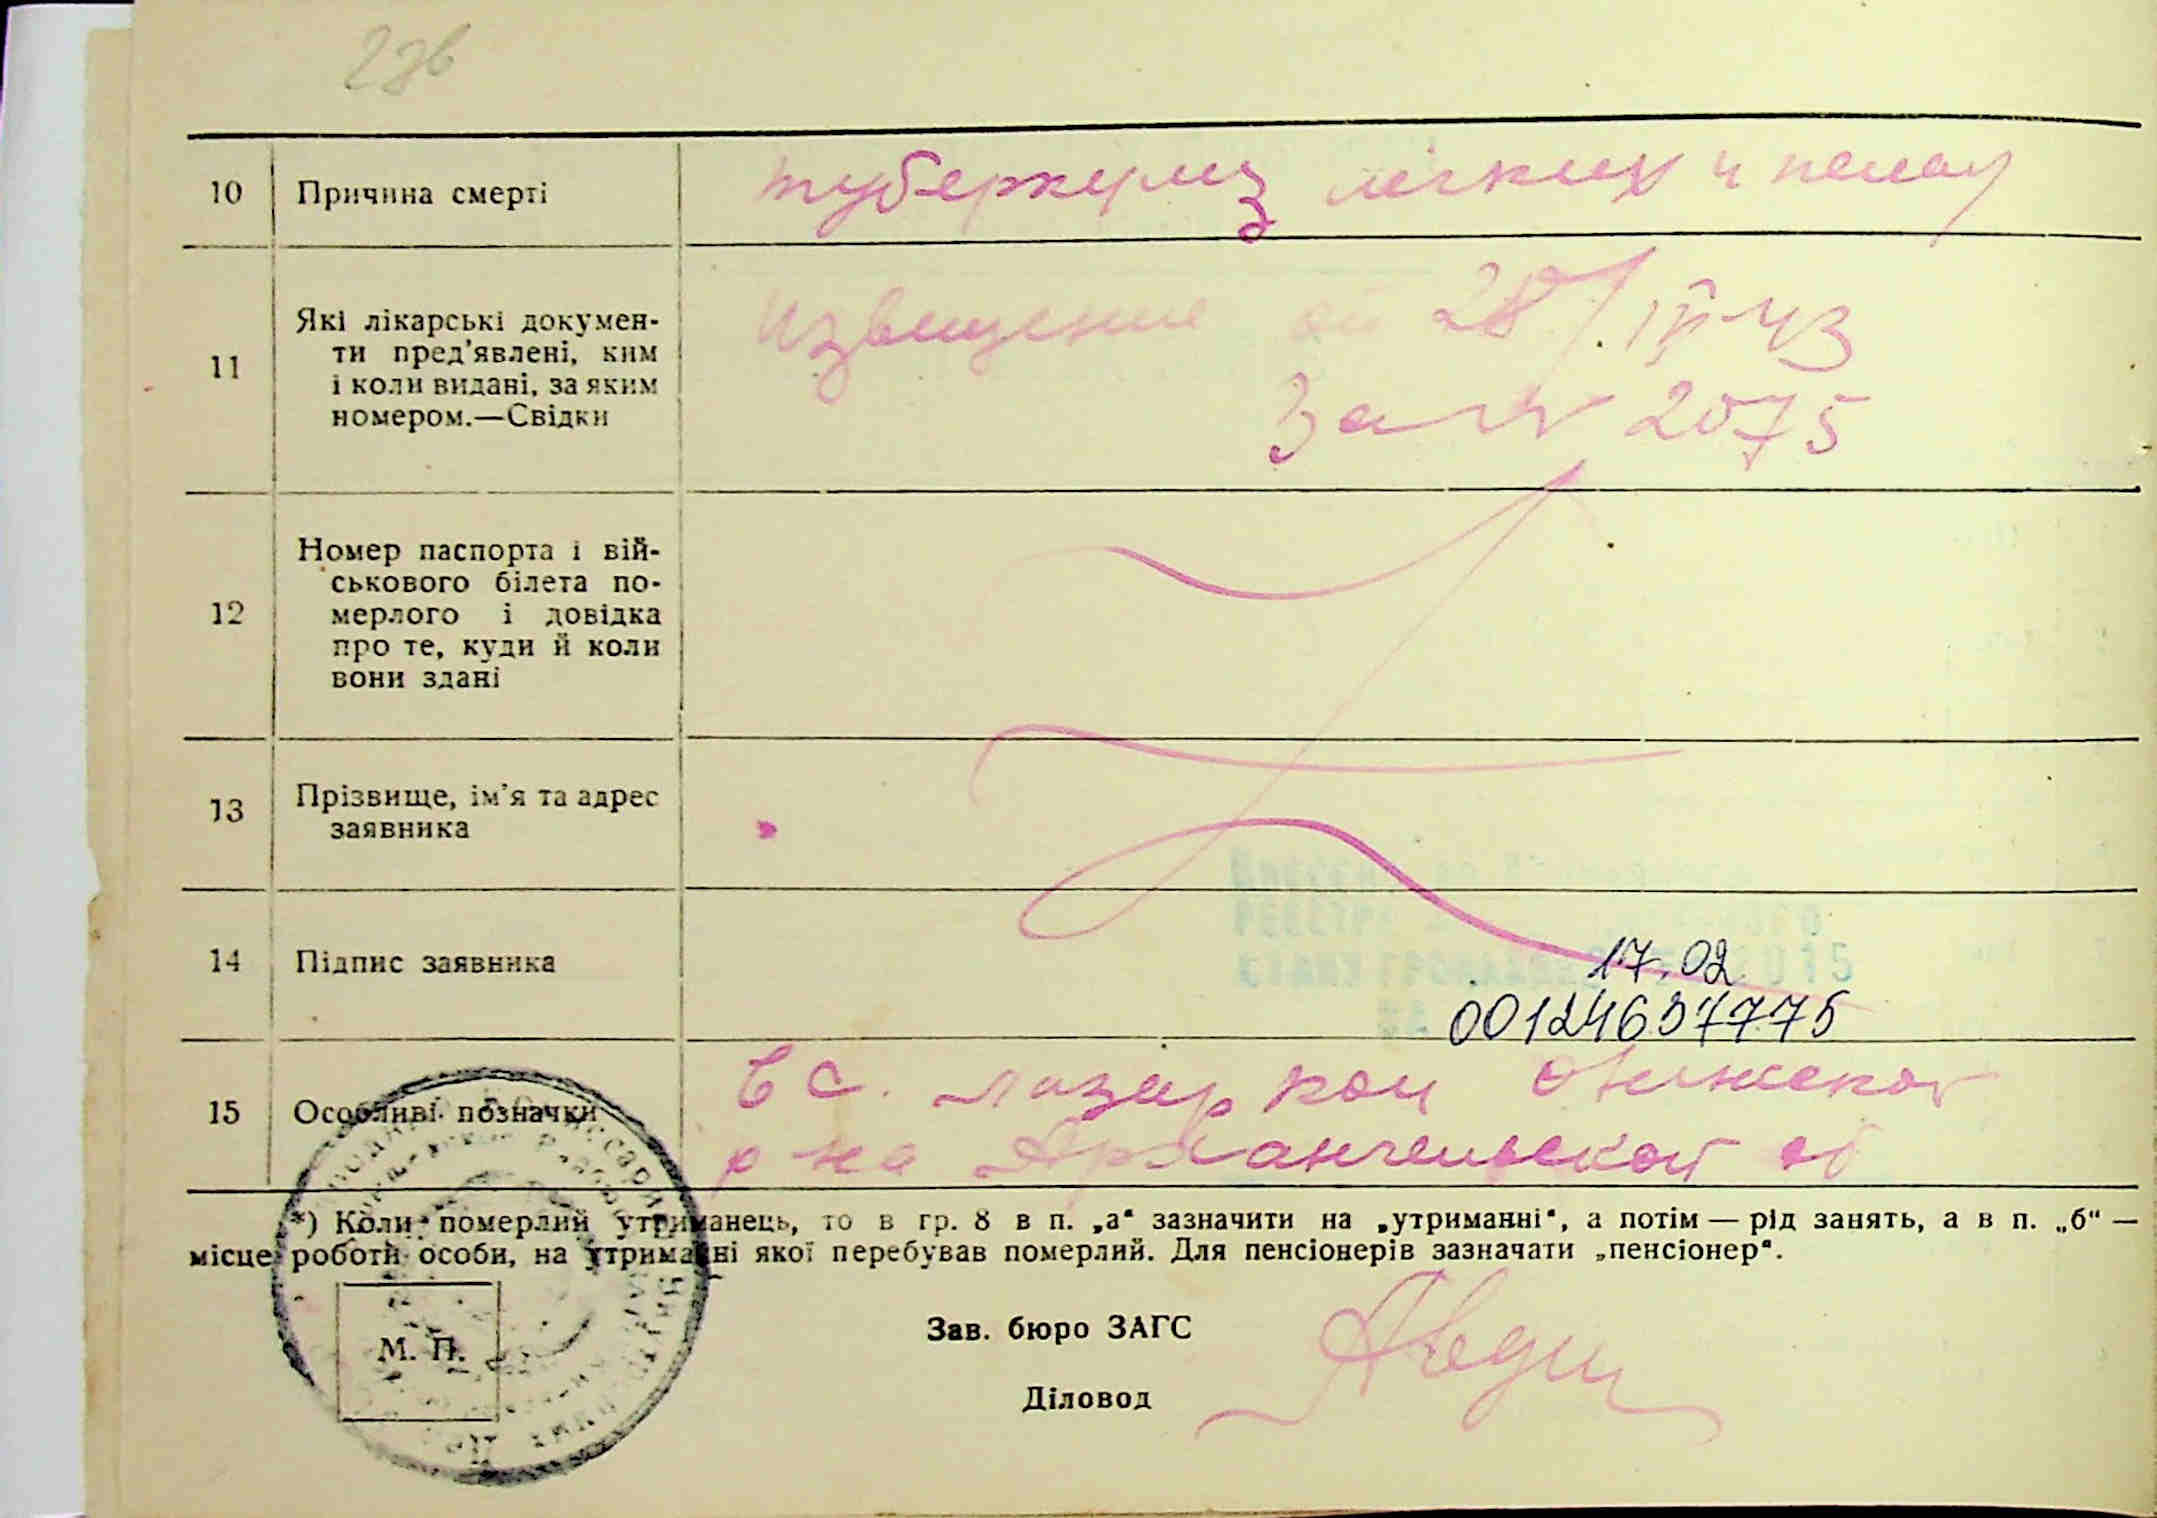 10 Причина смерті туберкулез легких и
11 Які лікарські докумен-
ти пред'явлені, ким
і коли видані, за яким
номером.—Свідки
Извещение от 28/IV-43
за № 2075
12 Номер паспорта і вій-
ськового білета по-
мерлого і довідка
про те, куди й коли
вони здані
13 Прізвище, ім'я та адрес
заявника
14 Підпис заявника
17.02
00124637775
15 Особливі позначки
в с. Онежской
р-на Архангельской об
*) Коли померлий утриманець, то в гр. 8 в п. „а“ зазначити на „утриманні“, а потім — рід занять, а в п. „б“ —
місце роботи особи, на утриманні якої перебував померлий. Для пенсіонерів зазначати „пенсіонер“.
М. П.
Зав. бюро ЗАГС
Діловод